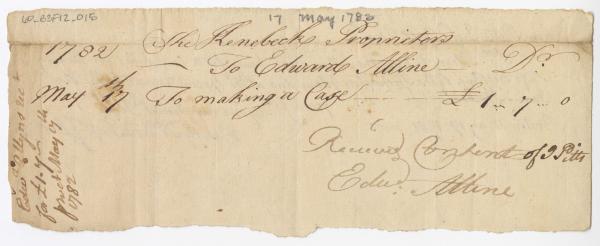 60_B3F12_015
17 May 1782
1782 The Kenebeck Proprietors
To Edward Alline Dr
May 17 To making a Case £1 - 7 - 0
Received Content of J Pitts
Edwd. Alline
Edwd
for £1. 7
May 17th
1782